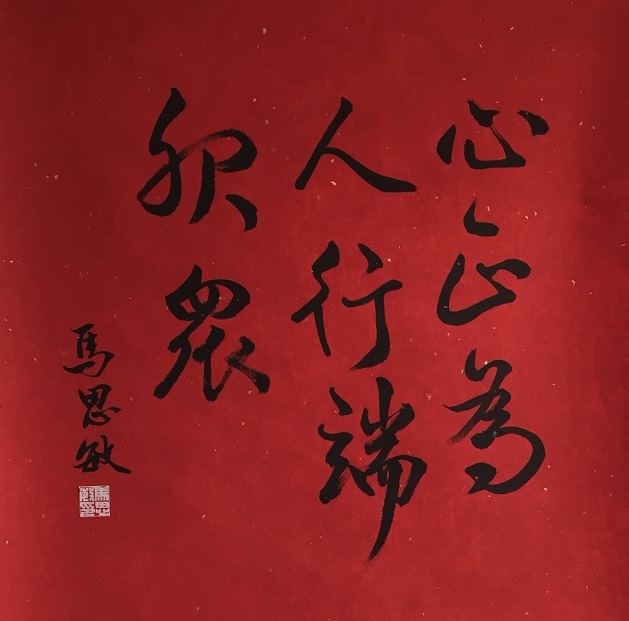 心正為
人行端
服眾
馬思敏